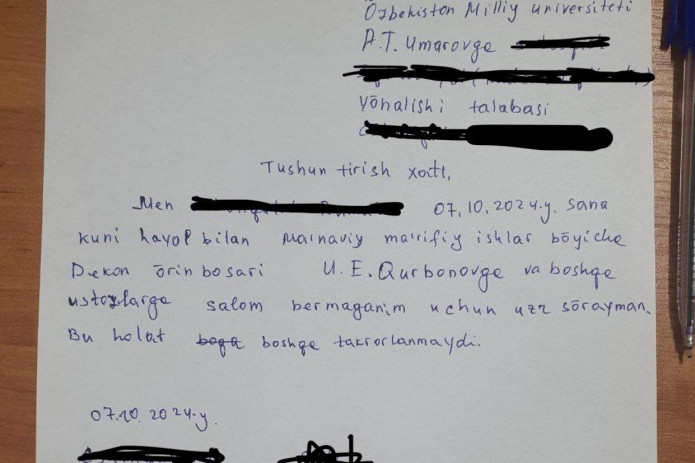 Ōzbekiston Milliy universiteti
A.T. Umarovge
yōnalishi talabasi
Tushun tirish xati,
Men 07.10.2024.y. sana
kuni hayol bilan ma'naviy ma'rifiy ishlar bōyiche
Dekon ōrinbosari U.E.Qurbonovge va boshqe
ustozlarge salom bermaganim uchun uzr sōrayman.
Bu holat boshqe takrorlanmaydi.
07.10.2024.y.